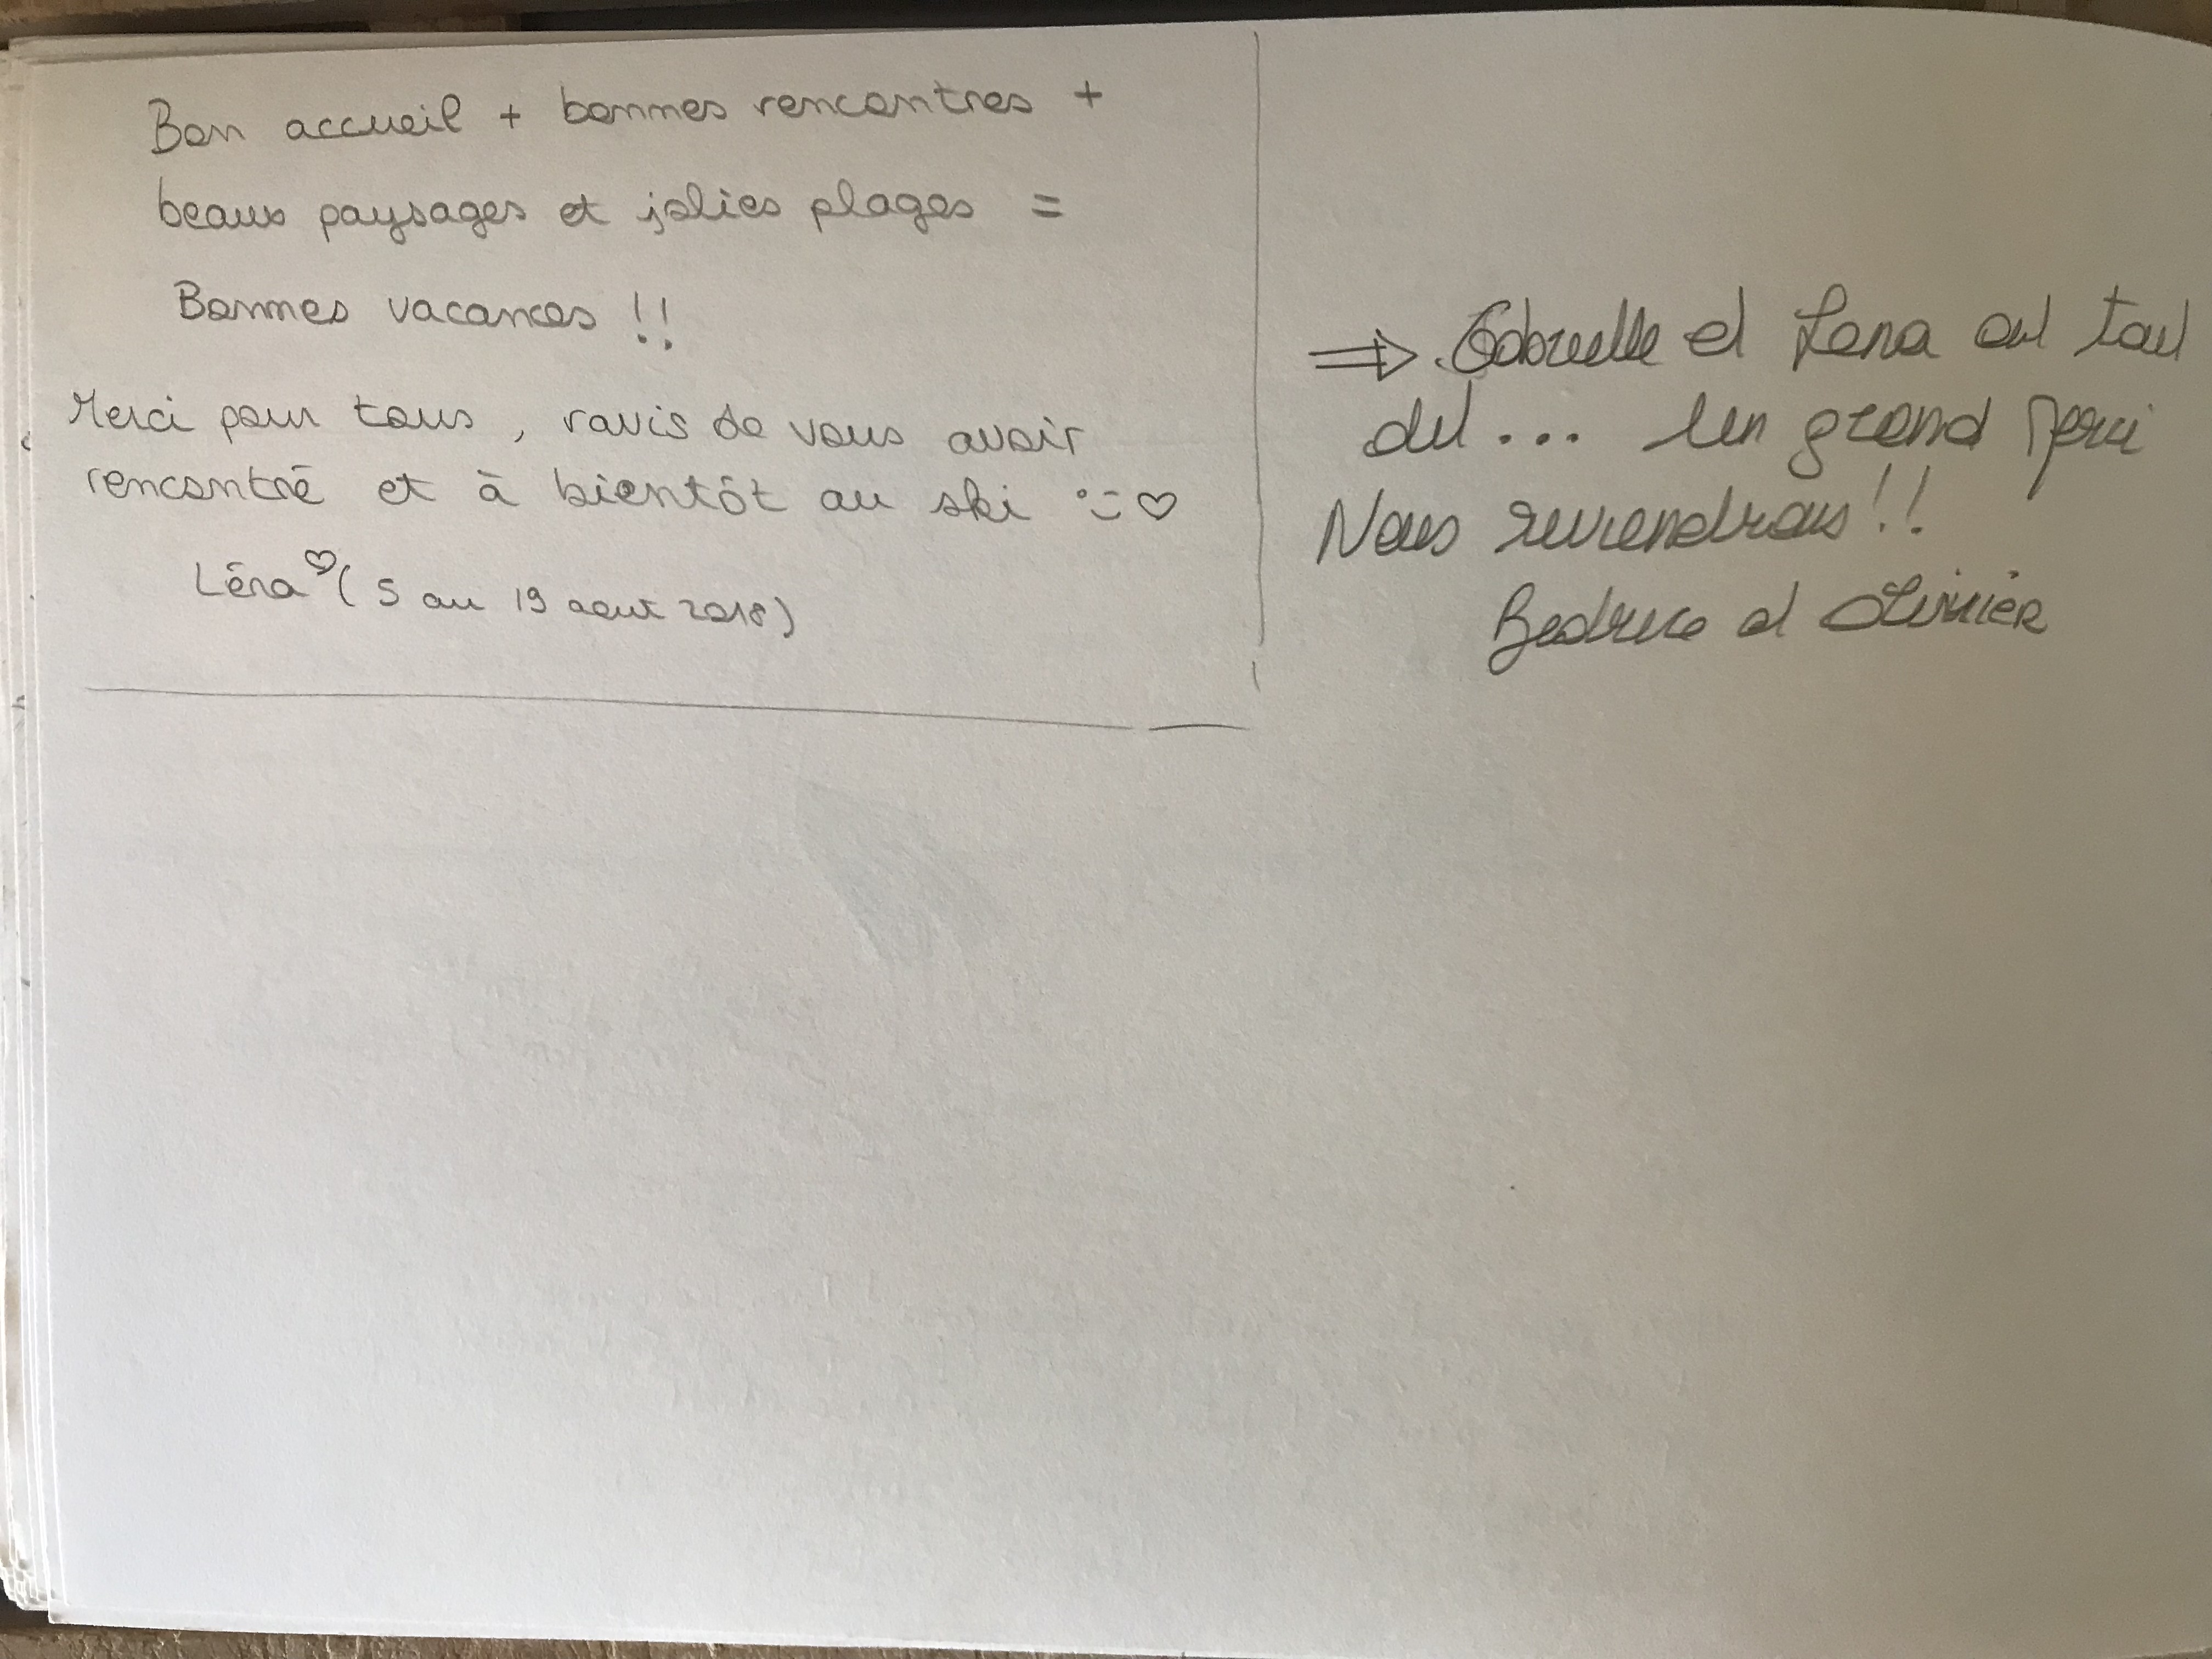 Bon accueil + bonnes rencontres +
beaux paysages et jolies plages =
Bonnes vacances !!
Merci pour tous, ravis de vous avoir
rencontré et à bientôt au ski :) ♡
Léna ♡ (5 au 19 aout 2018)
⇒ Gabrielle et Lena ont tout
dit... Un grand Merci
Nous reviendrons !!
Beatrice et Olivier